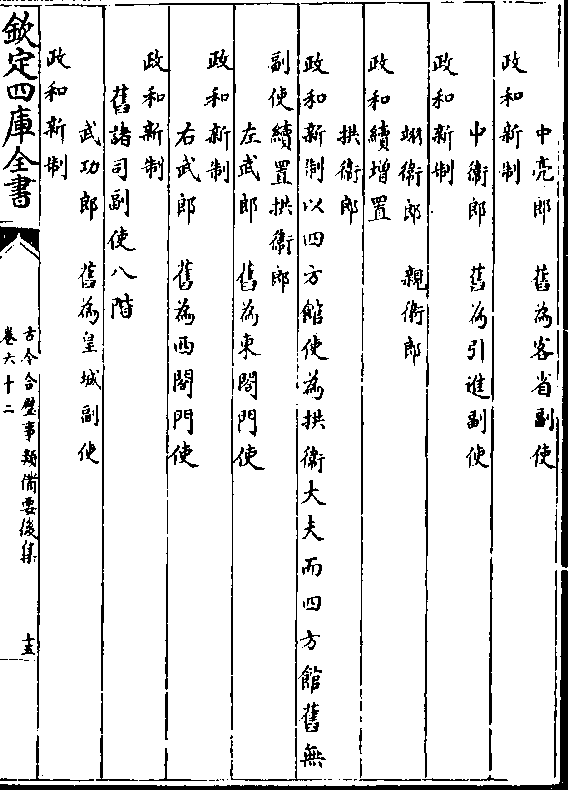 中亮郎　舊為客省副使
政和新制
中衛郎　舊為引進副使
政和新制
翊衛郎　親衛郎
政和續增置
拱衛郎
政和新制以四方館使為拱衛大夫而四方館舊無
副使續置拱衛郎
左武郎　舊為東閤門使
政和新制
右武郎　舊為西閤門使
政和新制
舊諸司副使八階
武功郎　舊為皇城副使
政和新制
欽定四庫全書
古今合璧事類備要後集
卷六十二
十五